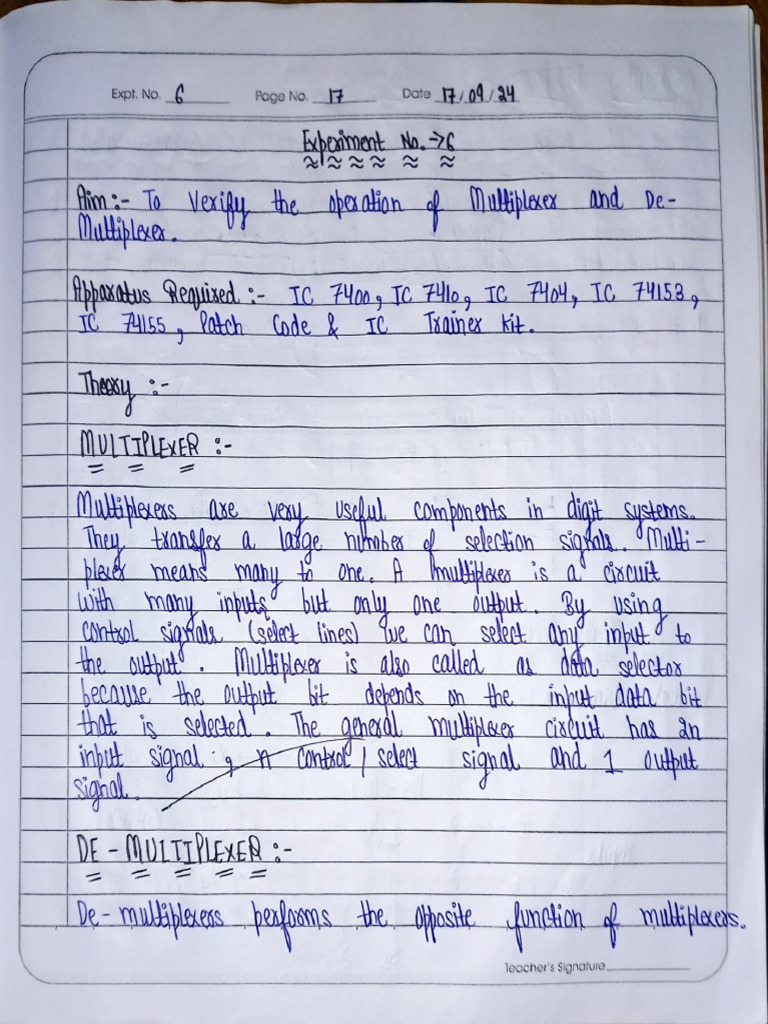 Expt. No. 6 Page No. 17 Date 17/09/24
Experiment No. → 6
Aim :- To Verify the operation of Multiplexer and De-
Multiplexer.
Apparatus Required :- IC 7400, IC 7410, IC 7404, IC 74153,
IC 74155, Patch Code & IC Trainer Kit.
Theory :-
MULTIPLEXER :-
Multiplexers are very useful components in digit systems.
They transfer a large number of selection signals. Multi-
plexer means many to one. A multiplexer is a circuit
with many inputs but only one output. By using
control signals (select lines) we can select any input to
the output. Multiplexer is also called as data selector
because the output bit depends on the input data bit
that is selected. The general multiplexer circuit has 2n
input signal, n control / select signal and 1 output
signal.
DE-MULTIPLEXER :-
De-multiplexers performs the opposite function of multiplexers.
Teacher's Signature